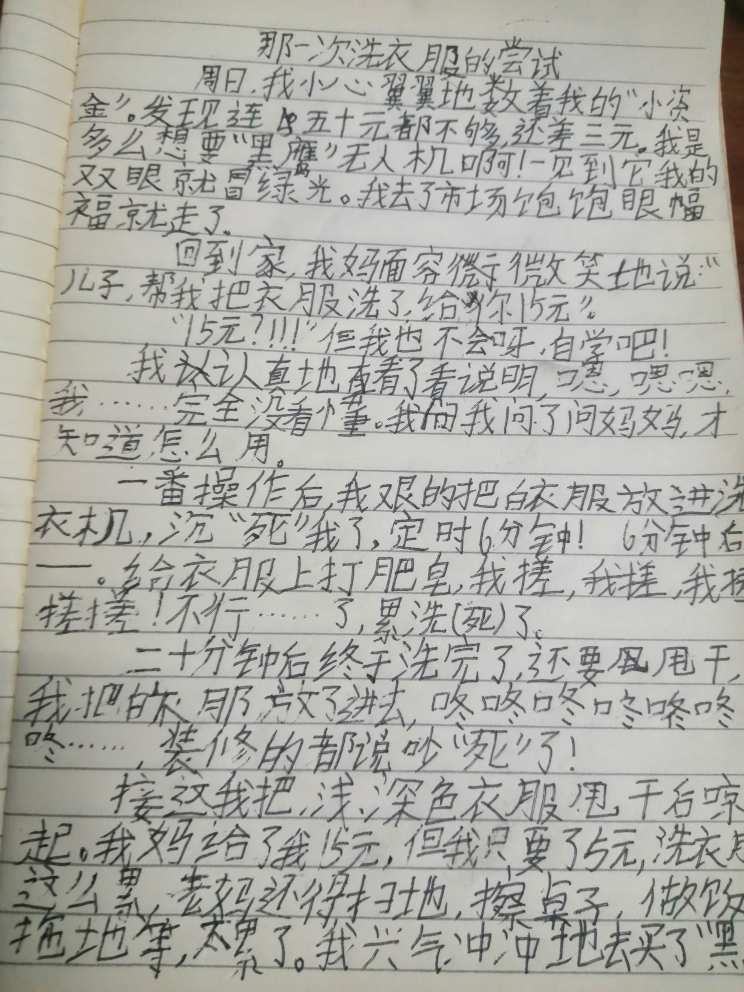 那一次洗衣服的尝试
周日，我小心翼翼地数着我的“小资
金”。发现连 五十元都不够，还差三元。我是
多么想要“黑鹰”无人机啊！一见到它我的
双眼就冒绿光。我去了市场饱饱眼幅
福就走了。
回到家，我妈面容微于微笑地说：“
儿子，帮我把衣服洗了，给你15元”。
“15元？!!!”但我也不会呀，自学吧！
我认认真地查看了看说明，嗯，嗯嗯，
我……完全没看懂。我向我问了问妈妈，才
知道怎么用。
一番操作后，我艰的把白衣服放进洗
衣机，沉“死”我了，定时6分钟！ 6分钟后
——。给衣服上打肥皂，我搓，我搓，我搓
搓搓！不行……了，累洗(死)了。
二十分钟后终于洗完了，还要甩干，
我把白衣服放了进去，咚咚咚咚咚咚
咚……，装修的都说吵“死”了！
接这我把浅、深色衣服甩干后晾
起。我妈给了我15元，但我只要了5元，洗衣
这么累，老妈还得扫地，擦桌子，做饮
拖地等，太累了。我兴气冲冲地去买了“黑